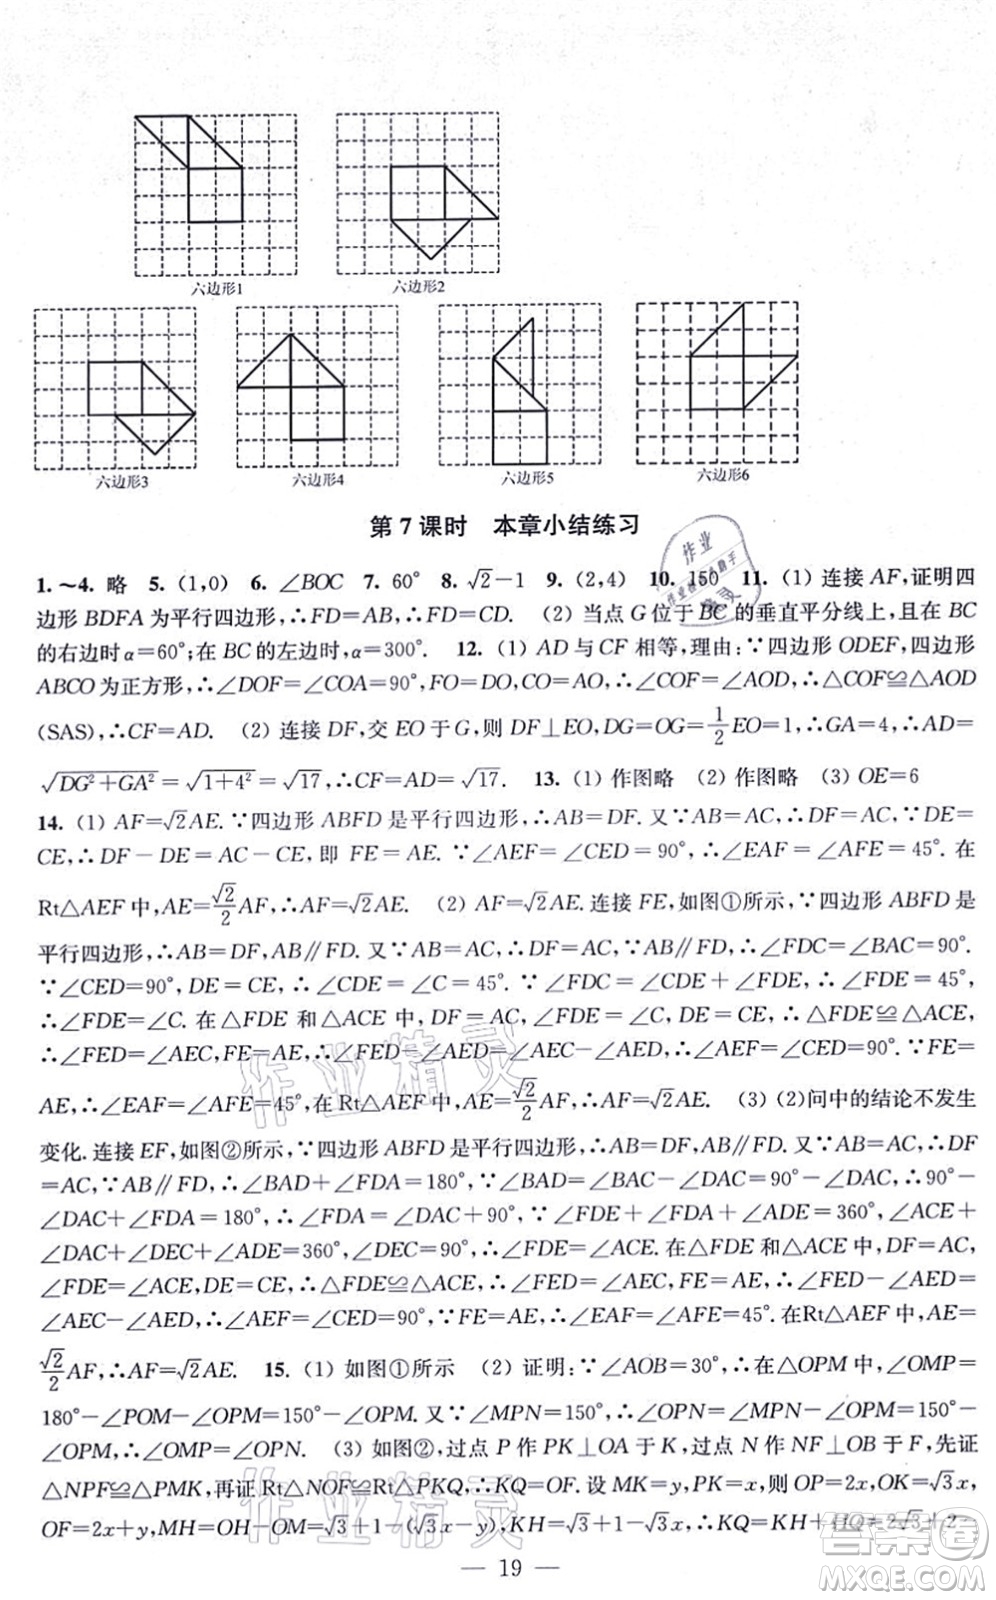 六边形1 六边形2
六边形3 六边形4 六边形5 六边形6
第 7 课时 本章小结练习
1.～4. 略 5. (1,0) 6. ∠BOC 7. 60° 8. √2－1 9. (2,4) 10. 150 11. (1) 连接 AF,证明四
边形 BDFA 为平行四边形,∴FD＝AB,∴FD＝CD. (2) 当点 G 位于 BC 的垂直平分线上,且在 BC
的右边时 α＝60°;在 BC 的左边时,α＝300°. 12. (1) AD 与 CF 相等,理由:∵四边形 ODEF,四边形
ABCO 为正方形,∴∠DOF＝∠COA＝90°,FO＝DO,CO＝AO,∴∠COF＝∠AOD,∴△COF≌△AOD
(SAS),∴CF＝AD. (2) 连接 DF,交 EO 于 G,则 DF⊥EO,DG＝OG＝1/2EO＝1,∴GA＝4,∴AD＝
√(DG²＋GA²)＝√(1＋4²)＝√17,∴CF＝AD＝√17. 13. (1) 作图略 (2) 作图略 (3) OE＝6
14. (1) AF＝√2AE.∵四边形 ABFD 是平行四边形,∴AB＝DF.又∵AB＝AC,∴DF＝AC,∵DE＝
CE,∴DF－DE＝AC－CE,即 FE＝AE.∵∠AEF＝∠CED＝90°,∴∠EAF＝∠AFE＝45°.在
Rt△AEF 中,AE＝√2/2AF,∴AF＝√2AE. (2) AF＝√2AE.连接 FE,如图①所示,∵四边形 ABFD 是
平行四边形,∴AB＝DF,AB∥FD.又∵AB＝AC,∴DF＝AC,∵AB∥FD,∴∠FDC＝∠BAC＝90°.
∵∠CED＝90°,DE＝CE,∴∠CDE＝∠C＝45°.∵∠FDC＝∠CDE＋∠FDE,∴∠FDE＝45°,
∴∠FDE＝∠C.在△FDE 和△ACE 中,DF＝AC,∠FDE＝∠C,DE＝CE,∴△FDE≌△ACE,
∴∠FED＝∠AEC,FE＝AE,∴∠FED－∠AED＝∠AEC－∠AED,∴∠AEF＝∠CED＝90°.∵FE＝
AE,∴∠EAF＝∠AFE＝45°,在Rt△AEF 中,AE＝√2/2AF,∴AF＝√2AE. (3) (2)问中的结论不发生
变化.连接 EF,如图②所示,∵四边形 ABFD 是平行四边形,∴AB＝DF,AB∥FD.又∵AB＝AC,∴DF
＝AC,∵AB∥FD,∴∠BAD＋∠FDA＝180°,∵∠BAD＝∠BAC－∠DAC＝90°－∠DAC,∴90°－
∠DAC＋∠FDA＝180°,∴∠FDA＝∠DAC＋90°,∵∠FDE＋∠FDA＋∠ADE＝360°,∠ACE＋
∠DAC＋∠DEC＋∠ADE＝360°,∠DEC＝90°,∴∠FDE＝∠ACE.在△FDE 和△ACE 中,DF＝AC,
∠FDE＝∠ACE,DE＝CE,∴△FDE≌△ACE,∴∠FED＝∠AEC,FE＝AE,∴∠FED－∠AED＝
∠AEC－∠AED,∴∠AEF＝∠CED＝90°,∵FE＝AE,∴∠EAF＝∠AFE＝45°.在Rt△AEF 中,AE＝
√2/2AF,∴AF＝√2AE. 15. (1) 如图①所示 (2) 证明:∵∠AOB＝30°,∴在△OPM 中,∠OMP＝
180°－∠POM－∠OPM＝150°－∠OPM.又∵∠MPN＝150°,∴∠OPN＝∠MPN－∠OPM＝150°－
∠OPM,∴∠OMP＝∠OPN. (3) 如图②,过点 P 作 PK⊥OA 于 K,过点 N 作 NF⊥OB 于 F,先证
△NPF≌△PMK,再证 Rt△NOF≌Rt△PKQ,∴KQ＝OF.设 MK＝y,PK＝x,则 OP＝2x,OK＝√3x,
OF＝2x＋y,MH＝OH－OM＝√3＋1－(√3x－y),KH＝√3＋1－√3x,∴KQ＝KH＋HQ＝2√3＋2－
— 19 —
作业精灵
作业精灵
答案圈
MXQE.COM